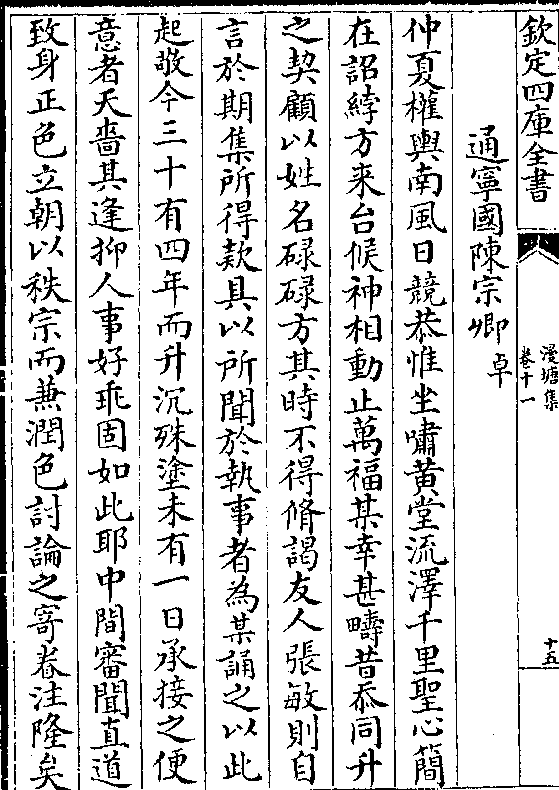 欽定四庫全書
漫塘集
卷十一
十五
通寧國陳宗卿卓
仲夏權輿南風日競恭惟坐嘯黄堂流澤千里聖心簡
在詔綍方来台候神相動止萬福某幸甚疇昔忝同升
之契顧以姓名碌碌方其時不得脩謁友人張敏則自
言於期集所得欵具以所聞於執事者為某誦之以此
起敬今三十有四年而升沉殊塗未有一日承接之便
意者天嗇其逢抑人事好乖固如此耶中間審聞直道
致身正色立朝以秩宗而兼潤色討論之寄眷注隆矣